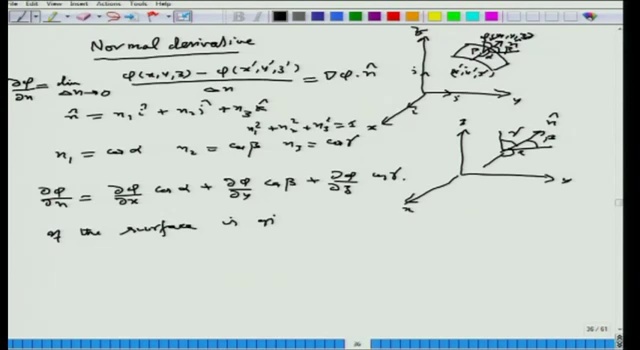 Edit View Insert Actions Tools Help
Normal derivative
∂φ/∂n = lim Δn→0 (φ(x,y,z) − φ(x',y',z'))/Δn = ∇φ·n̂
n̂ = n₁ î + n₂ ĵ + n₃ k̂
n₁² + n₂² + n₃² = 1
n₁ = cosα n₂ = cosβ n₃ = cosγ
∂φ/∂n = ∂φ/∂x cosα + ∂φ/∂y cosβ + ∂φ/∂z cosγ.
of the surface is gi
z
φ(x,y,z)
(x',y',z')
y
x
z
γ n̂
β
α
y
x
26 / 61
36